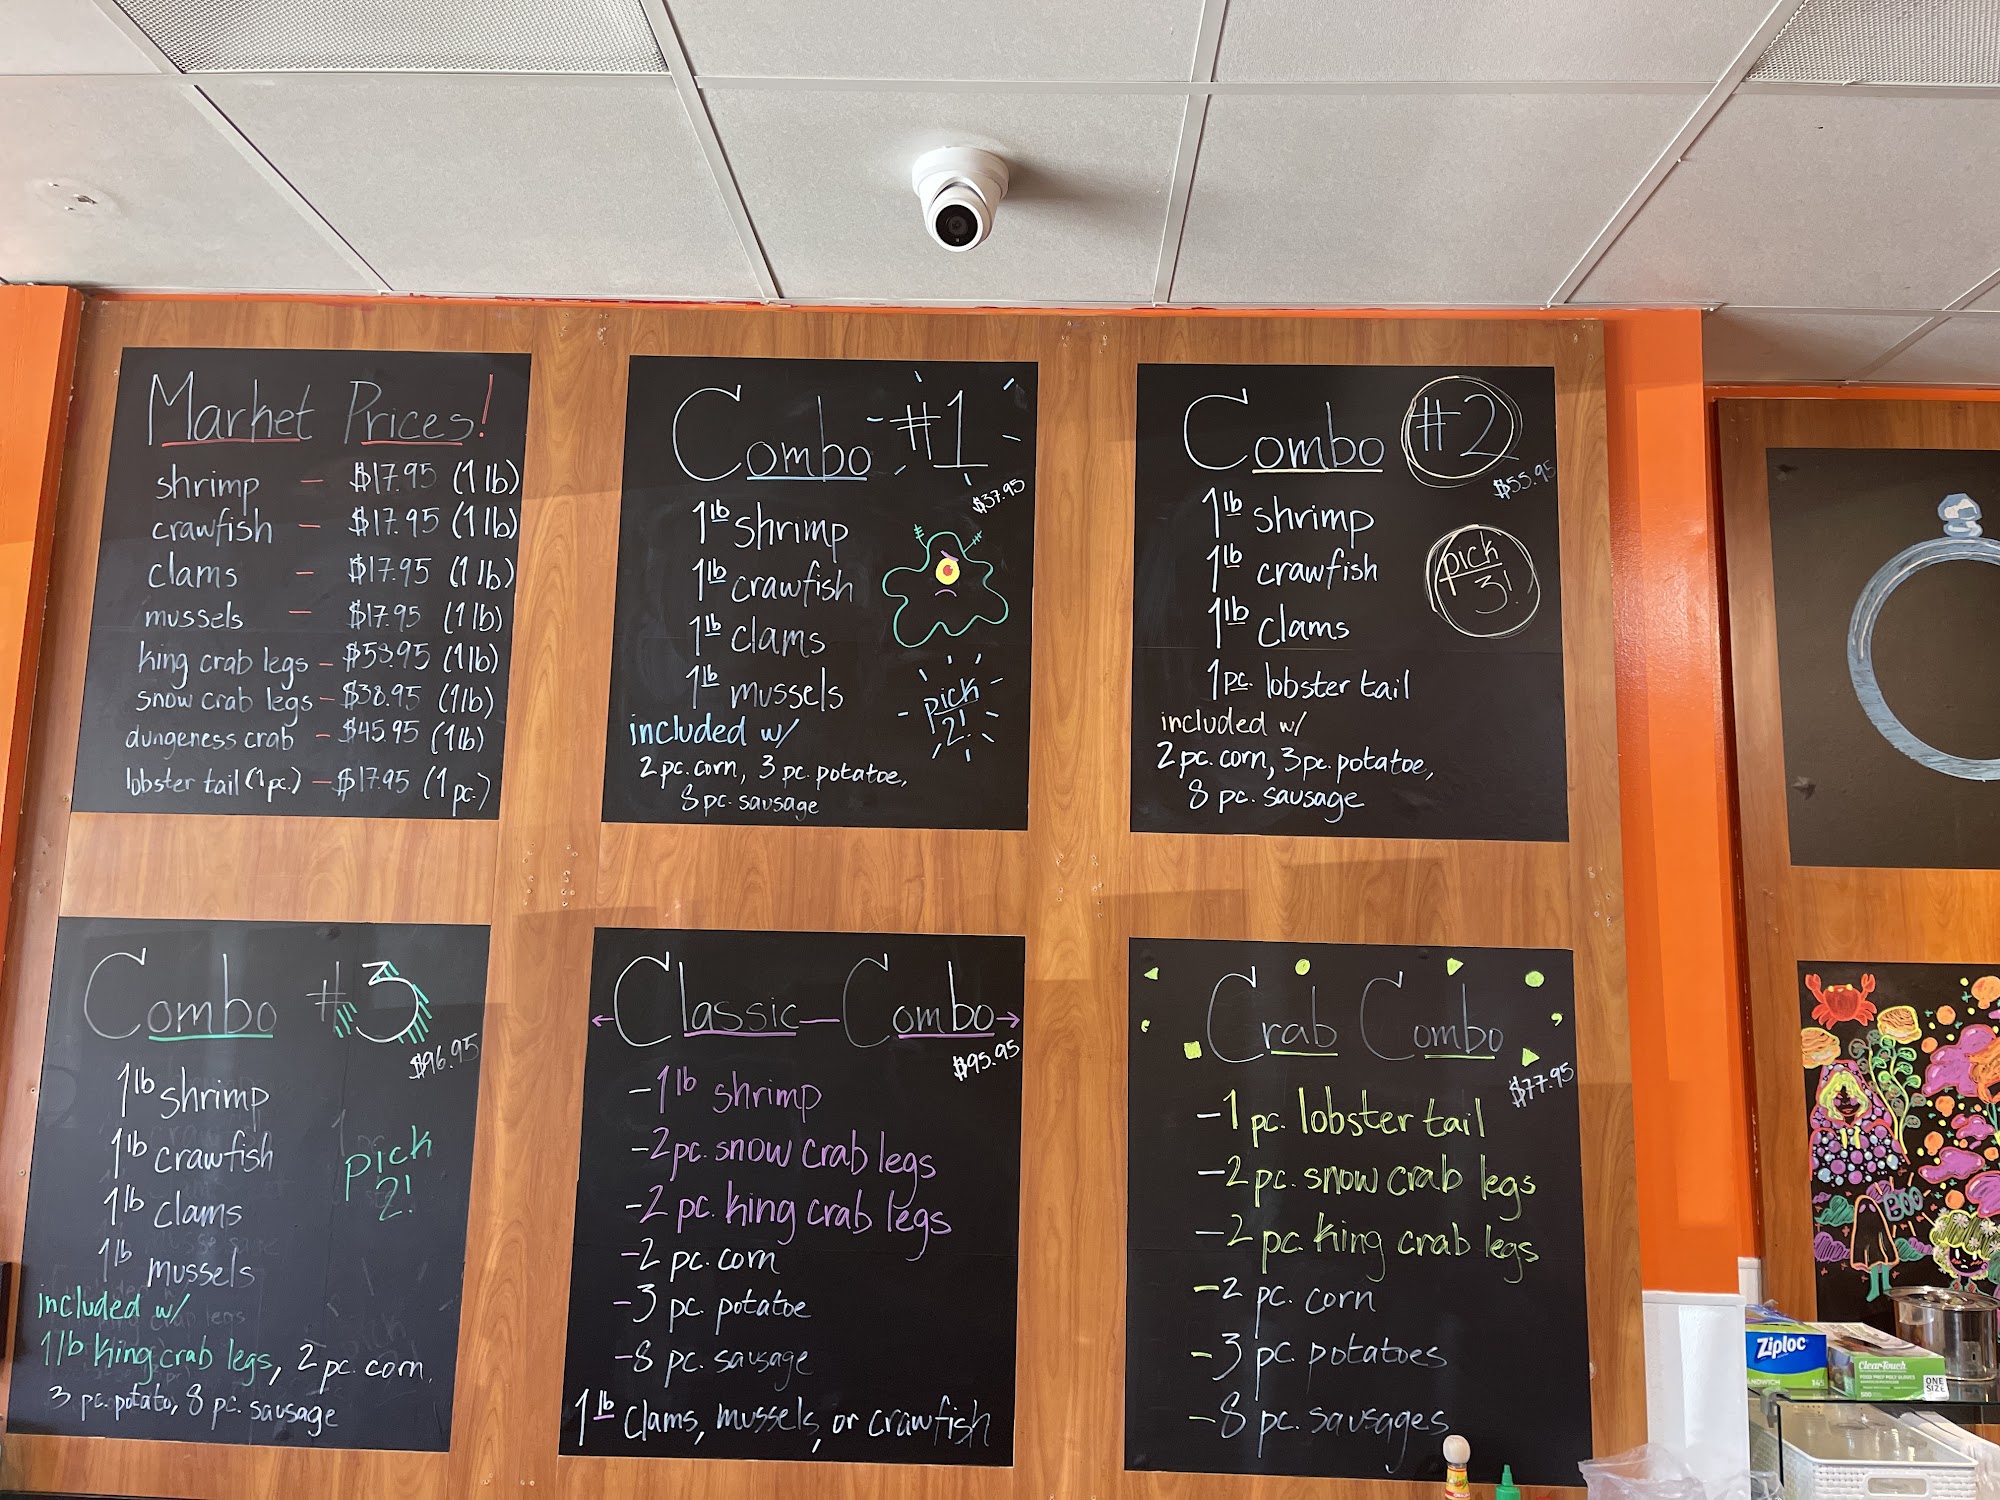 Market Prices!
shrimp - $17.95 (1 lb)
crawfish - $17.95 (1 lb)
clams - $17.95 (1 lb)
mussels - $17.95 (1 lb)
king crab legs - $58.95 (1 lb)
snow crab legs - $38.95 (1 lb)
dungeness crab - $45.95 (1 lb)
lobster tail (1 pc.) - $17.95 (1 pc.)
Combo #1
$37.95
1 lb shrimp
1 lb crawfish
1 lb clams
1 lb mussels
pick
2!
included w/
2 pc. corn, 3 pc. potatoe,
8 pc. sausage
Combo #2
$55.95
1 lb shrimp
1 lb crawfish
1 lb clams
1 pc. lobster tail
pick
3!
included w/
2 pc. corn, 3 pc. potatoe,
8 pc. sausage
Combo #3
$96.95
1 lb shrimp
1 lb crawfish
1 lb clams
1 lb mussels
pick
2!
included w/
1 lb king crab legs, 2 pc. corn,
3 pc. potato, 8 pc. sausage
Classic Combo
$95.95
- 1 lb shrimp
- 2 pc. snow crab legs
- 2 pc. king crab legs
- 2 pc. corn
- 3 pc. potatoe
- 8 pc. sausage
1 lb clams, mussels, or crawfish
Crab Combo
$77.95
- 1 pc. lobster tail
- 2 pc. snow crab legs
- 2 pc. king crab legs
- 2 pc. corn
- 3 pc. potatoes
- 8 pc. sausages
BOO
Ziploc
ClearTouch
ONE
SIZE